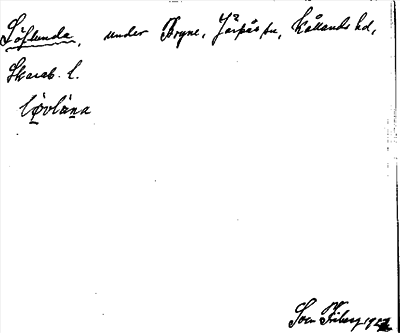 Löflunda, under Bryne, Järpås sn, Kållands hd,
Skarab. l.
lǫvlůna
Sven Friberg 1927